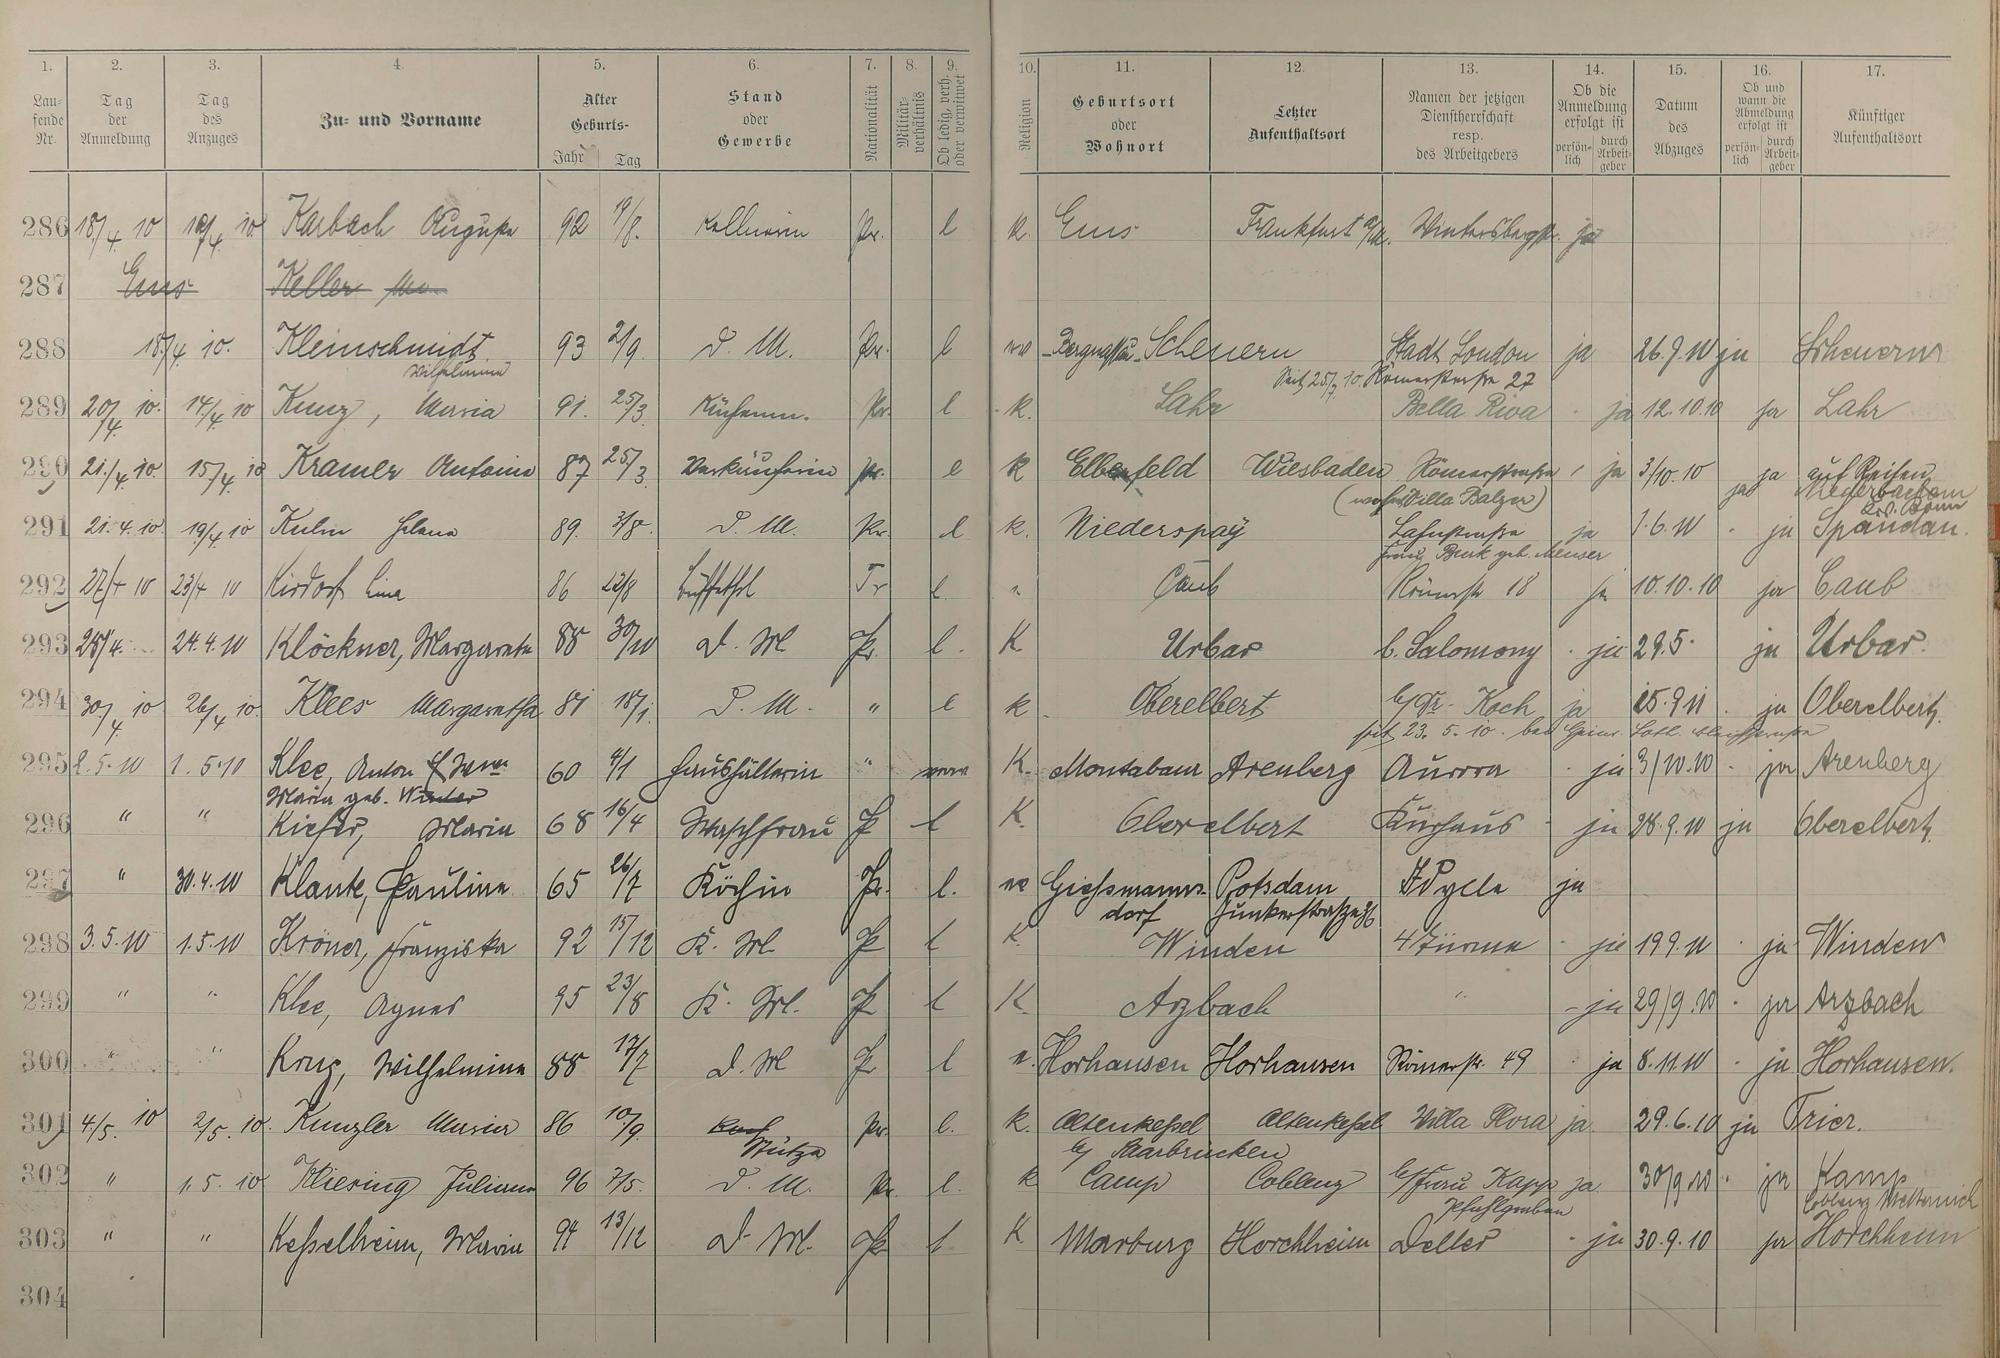 1. 2. 3. 4. 5. 6. 7. 8. 9. 10. 11. 12. 13. 14. 15. 16. 17.
Lau-
fende
Nr.
Tag
der
Anmeldung
Tag
des
Anzuges
Zu- und Vorname
Alter
Geburts-
Jahr Tag
Stand
oder
Gewerbe
Nationalität
Militär-
verhältnis
Ob ledig, verh.
oder verwitwet
Religion
Geburtsort
oder
Wohnort
Letzter
Aufenthaltsort
Namen der jetzigen
Dienstherrschaft
resp.
des Arbeitgebers
Ob die
Anmeldung
erfolgt ist
persön-
lich
durch
Arbeit-
geber
Datum
des
Abzuges
Ob und
wann die
Abmeldung
erfolgt ist
persön-
lich
durch
Arbeit-
geber
Künftiger
Aufenthaltsort
286 18/4. 10 Karbach Auguste 92 19/8. Kellnerin Pr. l k. Ems Frankfurt a/M. Wintersbergstr. ja
287 Ems Keller
288 18/4. 10. Kleinschmidt 93 2/9. D. M. Pr. l Scheuern Stadt London ja 26.9.10 ja Scheuern
Wilhelmine
Seit 25/7. 10. Römerstraße 27
289 20/4. 10. 14/4. 10 Kunz, Maria 91. 25/3. Pr. l k. Lahr Bella Riva ja 12.10.10 ja Lahr
290 21./4. 10. 15/4. 10 Kramer Antonie 87 25/3. Verkäuferin pr. l k Elberfeld Wiesbaden Römerstraße ja 3/10.10 ja auf Reisen
Villa Balzer)
291 21.4.10. 19/4. 10 Kulm Helena 89. 3/8. D. M. Pr. l k. Niederspay Lahnstraße ja 1.6.10 ja Spandau.
292 27/4 10 23/4 10 Kirdorf Lina 86 l. Caub Römerstr 18 ja 10.10.10 ja Caub
293 28/4. 24.4.10 Klöckner, Margareta 88 30/10 D. M Pr. l. K Urbar b. Salomony ja 29.5. ja Urbar.
294 30/4. 10 26/4. 10. Klees Margaretha 81 18/1. D. M. " l k. Oberelbert Koch ja 25.9 ja Oberelbert.
seit 23. 5. 10.
295 2.5.10 1.5.10 Klee, Anton 60 4/1 Haushälterin " K. Montabaur Arenberg Aurora ja 3/10.10 ja Arenberg
Maria geb. Winter
296 " " Kiefer, Maria 68 16/4 Waschfrau P l K. Oberelbert Kurhaus ja 28.9.10 ja Oberelbert.
297 " 30.4.10 Klante, Pauline 65 26/7 Köchin Pr. l. Giessmanns- Potsdam Idylle ja
dorf Junkerstraße
298 3.5.10 1.5.10 Kröner, Franziska 92 15/12 K. M P l K. Winden 4 Türme ja 19.9.10 ja Winden
299 " " Klee, Agnes 95 23/8 K. M. P l K. Arzbach " ja 29/9.10 ja Arzbach
300 " " Krug, Wilhelmine 88 17/7 D. M P l Horhausen Horhausen Römerstr. 49 ja 8.11.10 ja Horhausen.
301 4/5. 10 2/5. 10. Kunzler Maria 86 10/9. Pr. l. k. Altenkessel Altenkessel Villa Flora ja. 29.6.10 ja Trier.
Stütze
b/ Saarbrücken
302 " 1.5.10 Kliesing Juliane 96 7/5. D. M. Pr. l. k Camp Coblenz b/ Frau Kapp ja 30/9.10 ja Kamp
Pfuhlgraben
Coblenz Metternich
303 " " Kesselheim, Maria 94 13/12 D. M. Pr. l K Marburg Horchheim Deller ja 30.9.10 ja Horchheim
304